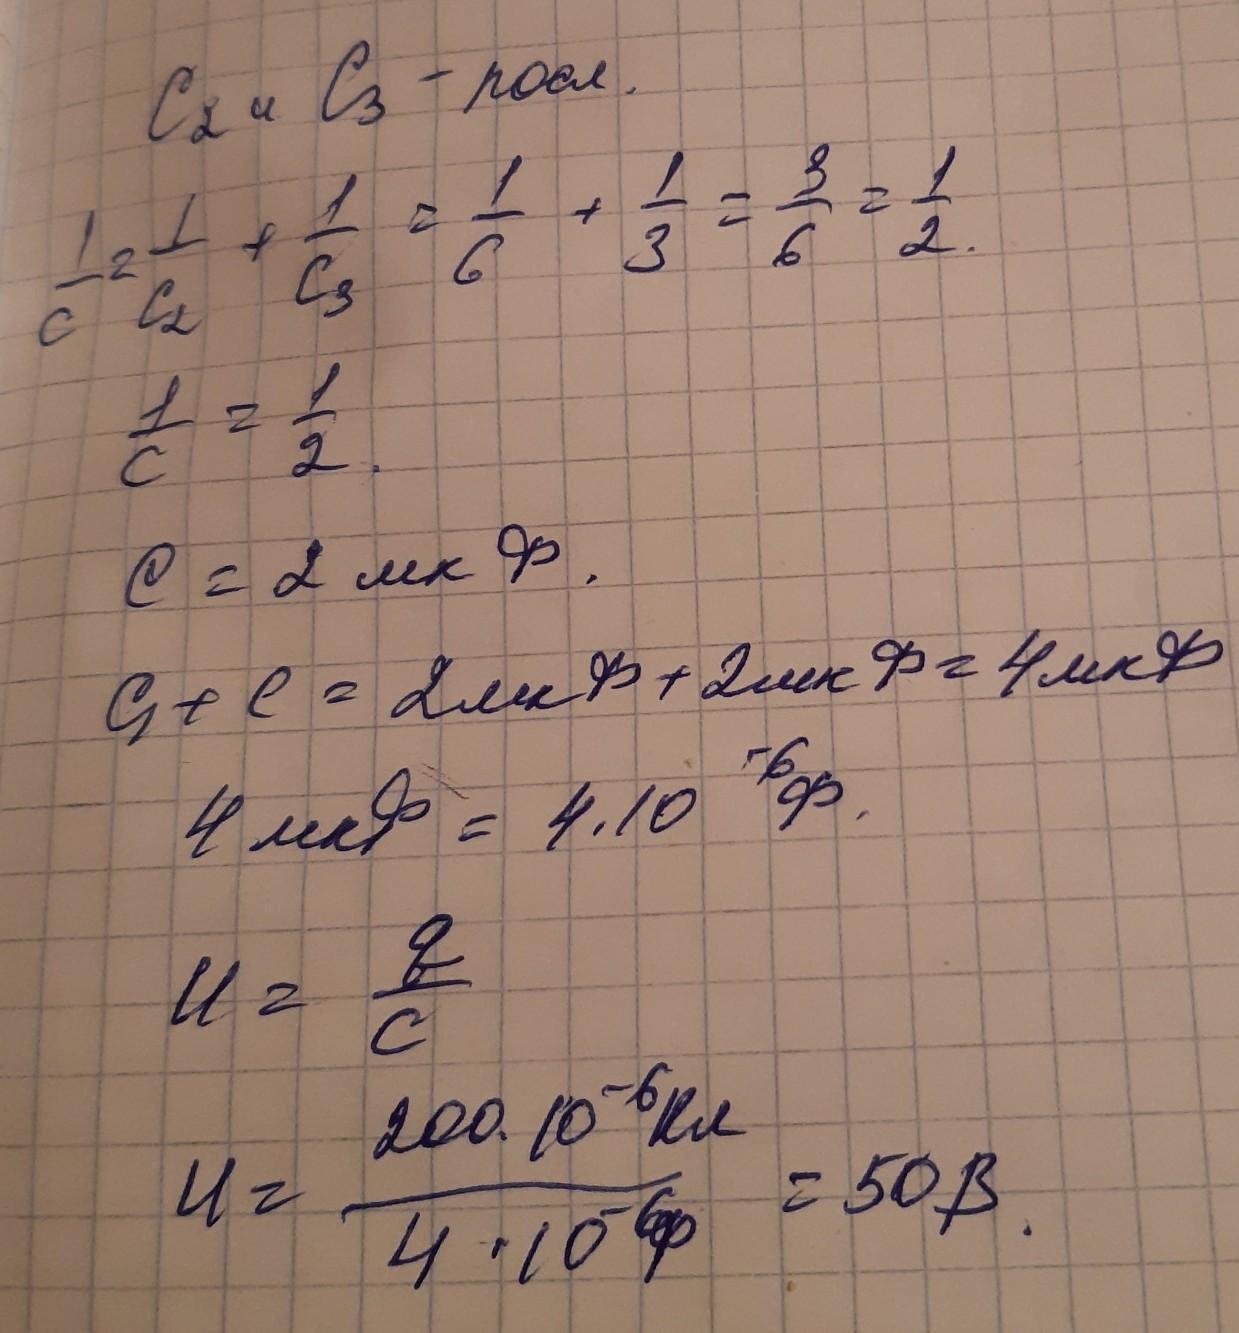 C₂ и C₃ - посл.
1/C = 1/C₂ + 1/C₃ = 1/6 + 1/3 = 3/6 = 1/2.
1/C = 1/2.
C = 2 мкФ.
C₁ + C = 2мкФ + 2мкФ = 4мкФ
4 мкФ = 4·10⁻⁶Ф.
U = q/C
U = 200·10⁻⁶Кл / 4·10⁻⁶Ф = 50В.